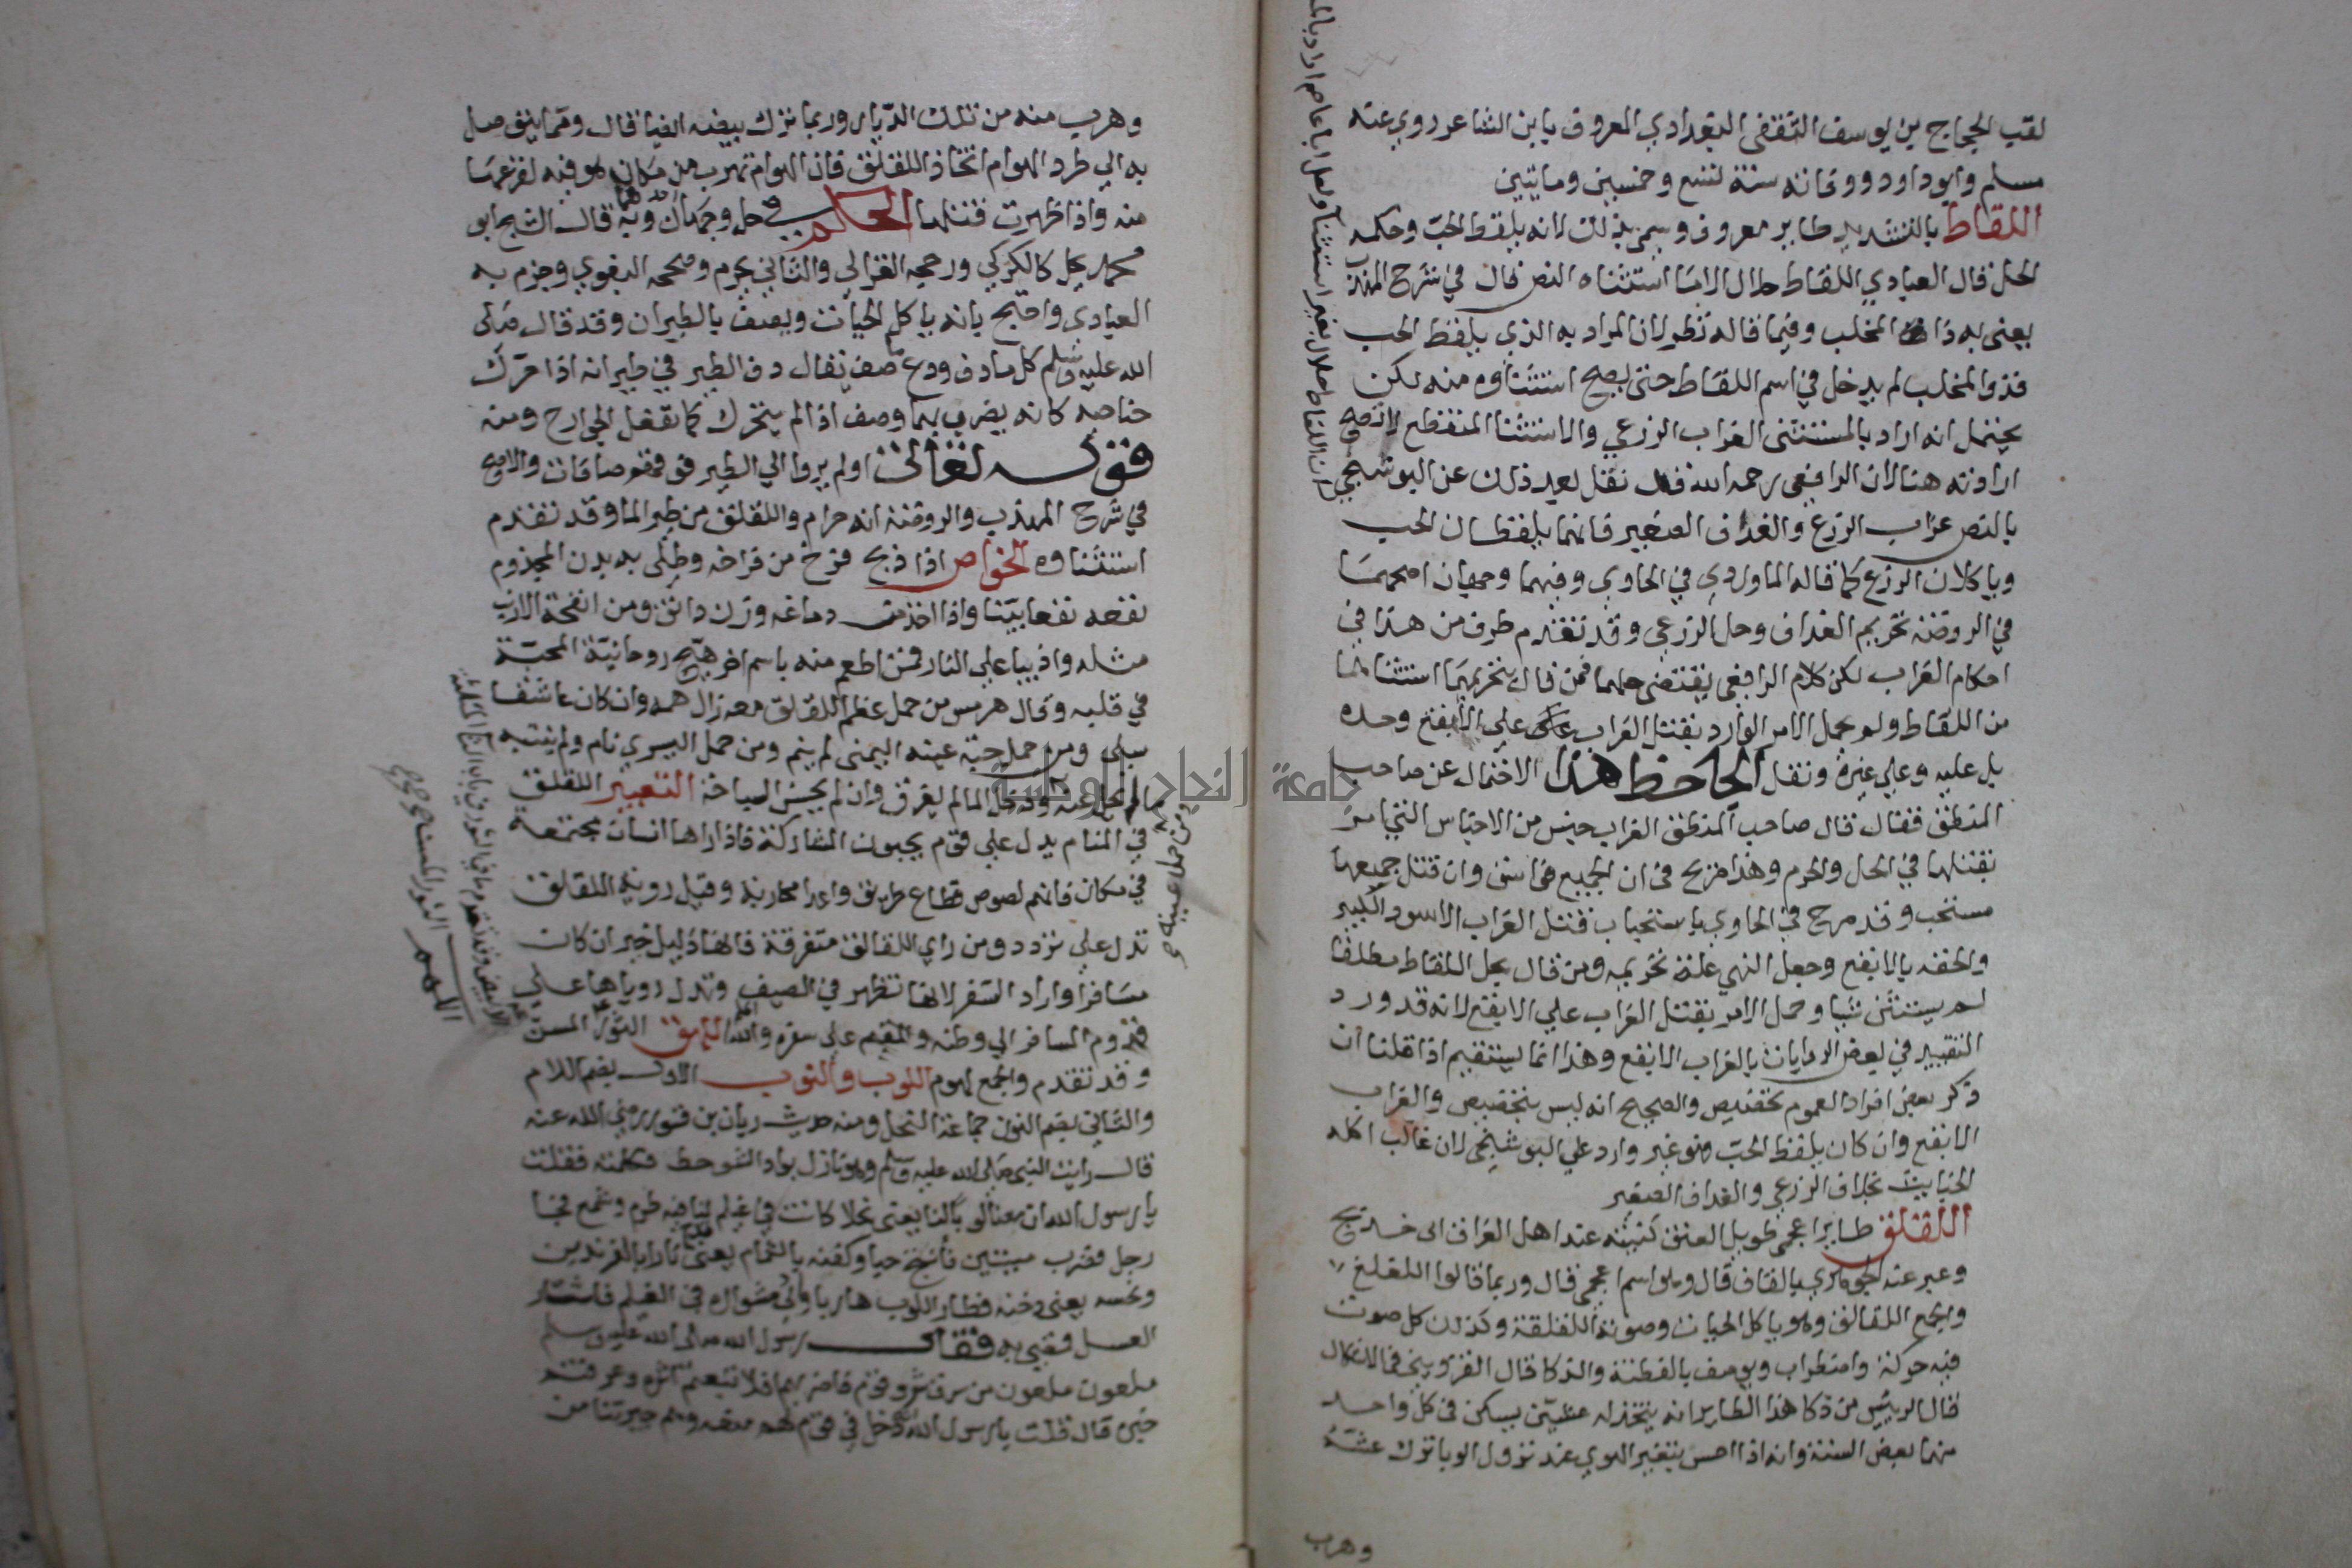 لقب الحجاج بن يوسف الثقفى البغدادي المعروف بابن الشاعر روي عنه
مسلم وابو داود ووفاته سنة تسع وخمسين ومايتين
اللقاط بالتشديد طاير معروف وسمى بذلك لانه يلقط الحب وحكمه
الحل قال العبادي اللقاط حلال الاما استثناه النص قال في شرح المهذب
يعنى به ذا المخلب وفيما قاله نظر لان المراد به الذي يلقط الحب
فذوا المخلب لم يدخل في اسم اللقاط حتى يصح استثناوه منه لكن
يحتمل انه اراد بالمستثنى الغراب الزرعي والاستثنا المنقطع لا تصح
ارادته هنا لان الرافعى رحمه الله قد نقل بعد ذلك عن البوشنجي
بالنص غراب الزرع والغداف الصغير فانهما يلقطان الحب
وياكلان الزرع كما قاله الماوردي في الحاوي وفيهما وجهان اصحهما
في الروضة تحريم الغداف وحل الزرعى وقد تقدم طرف من هذا في
احكام الغراب لكن كلام الرافعى يقتضى حلهما فمن قال بتحريمهما استثناهما
من اللقاط ولم يحمل الامر الوارد بقتل الغراب على الابقع وحده
بل عليه وعلي غيره ونقل الجاحظ هذا الاحتمال عن صاحب
المنطق فقال قال صاحب المنطق الغراب جنس من الاجناس التي امر
بقتلها في الحل والحرم وهذا صريح في ان الجميع فواسق وان قتل جميعها
مستحب وقد صرح في الحاوي باستحباب قتل الغراب الاسود الكبير
والحقه بالابقع وجعل النهي علة تحريمه ومن قال يحل اللقاط مطلقا
لم يستثنى شيا وحمل الامر بقتل الغراب علي الابقع لانه قد ورد
التقييد في بعض الروايات بالغراب الابقع وهذا انما يستقيم اذا قلنا ان
ذكر بعض افراد العموم تخصيص والصحيح انه ليس بتخصيص والغراب
الابقع وان كان يلقط الحب فهو غير وارد علي البوشنجى لان غالب اكله
الخبايث بخلاف الزرعي والغداف الصغير
اللقلق طاير اعجمى طويل العنق كنيته عند اهل العراق ابى خديج
وعبر عنه الجوهري بالقاف قال وهو اسم اعجمى قال وربما قالوا اللغلغ
والجمع اللقالق وهو ياكل الحيات وصوته اللقلقة وكذلك كل صوت
فيه حركة واضطراب ويوصف بالفطنة والذكا قال القزويني في الاشكال
قال الرييس من ذكا هذا الطاير انه يتخذ له عشين يسكن في كل واحد
منها بعض السنة وانه اذا احس بتغير الهوي عند نزول الوبا ترك عشه
وهرب
وهرب منه من تلك الديار وربما ترك بيضه ايضا قال ومما يتوصل
به الي طرد الهوام اتخاذ اللقلق فان الهوام تهرب من مكان هو فيه لفزعها
منه واذا ظهرت قتلها الحكم في حله وجهان احدهما وبه قال الشيخ ابو
محمد يحل كالكركي ورجحه الغزالي والثاني يحرم وصححه البغوي وجزم به
العبادي واحتج بانه ياكل الحيات ويصف بالطيران وقد قال صلى
الله عليه وسلم كل ما دف ودع ما صف يقال دف الطير في طيرانه اذا حرك
جناحيه كانه يضرب بهما وصف اذا لم يتحرك كما تفعل الجوارح ومنه
قوله تعالى اولم يروا الي الطير فوقهم صافات والاصح
في شرح المهذب والروضة انه حرام واللقلق من طير الما وقد تقدم
استثناوه الخواص اذا ذبح فرخ من فراخه وطلى به بدن المجذوم
نفعه نفعا بينا واذا اخذ من دماغه وزن دانق ومن انفحة الارنب
مثله واذيبا علي النار فمن اطعم منه باسم اخر هيج روحانية المحبة
في قلبه وقال هرمس من حمل عظم اللقلق معه زال همه وان كان عاشقا
سلى ومن حمل حبة عينه اليمنى لم ينم ومن حمل اليسري نام ولم ينتبه
ما لم تحل عنه ودخل الما لم يغرق وان لم يحسن السباحة التعبير اللقلق
في المنام يدل علي قوم يحبون المشاركة فاذا راها انسان مجتمعة
في مكان فانهم لصوص قطاع طريق واعدا محاربة وقيل روية اللقلق
تدل علي تردد ومن راي اللقالق متفرقة فانها دليل خير ان كان
مسافرا او اراد السفر لانها تظهر في الصيف وتدل روياها على
قدوم المسافر الي وطنه والمقيم علي سفره والله اعلم اللهق الثور المسن
وقد تقدم والجمع لهوم اللوب والنوب الاول بضم اللام
والثاني بضم النون جماعة النحل ومنه حديث ريان بن قسور رضي الله عنه
قال رايت النبي صلى الله عليه وسلم وهو نازل بواد الشوحط فكلمته فقلت
يا رسول الله ان معنا لوبا لنا يعنى نحلا كانت في عيلم لنا فيه طرم وشمع فجا
رجل فضرب ميتين فانتج حيا وكفنه بالثمام يعنى قدح نارا بالزندين
ونحسه يعنى دخنه فطار اللوب هاربا وادلى مشواره في العيلم فاشتار
العسل فمضى به فقال رسول الله صلى الله عليه وسلم
ملعون ملعون من سرق شرو قوم فاضر بهم افلا تبعتم اثره وعرفتم
خبره قال قلت يا رسول الله دخل في قوم لهم منعه وهم جيرتنا من